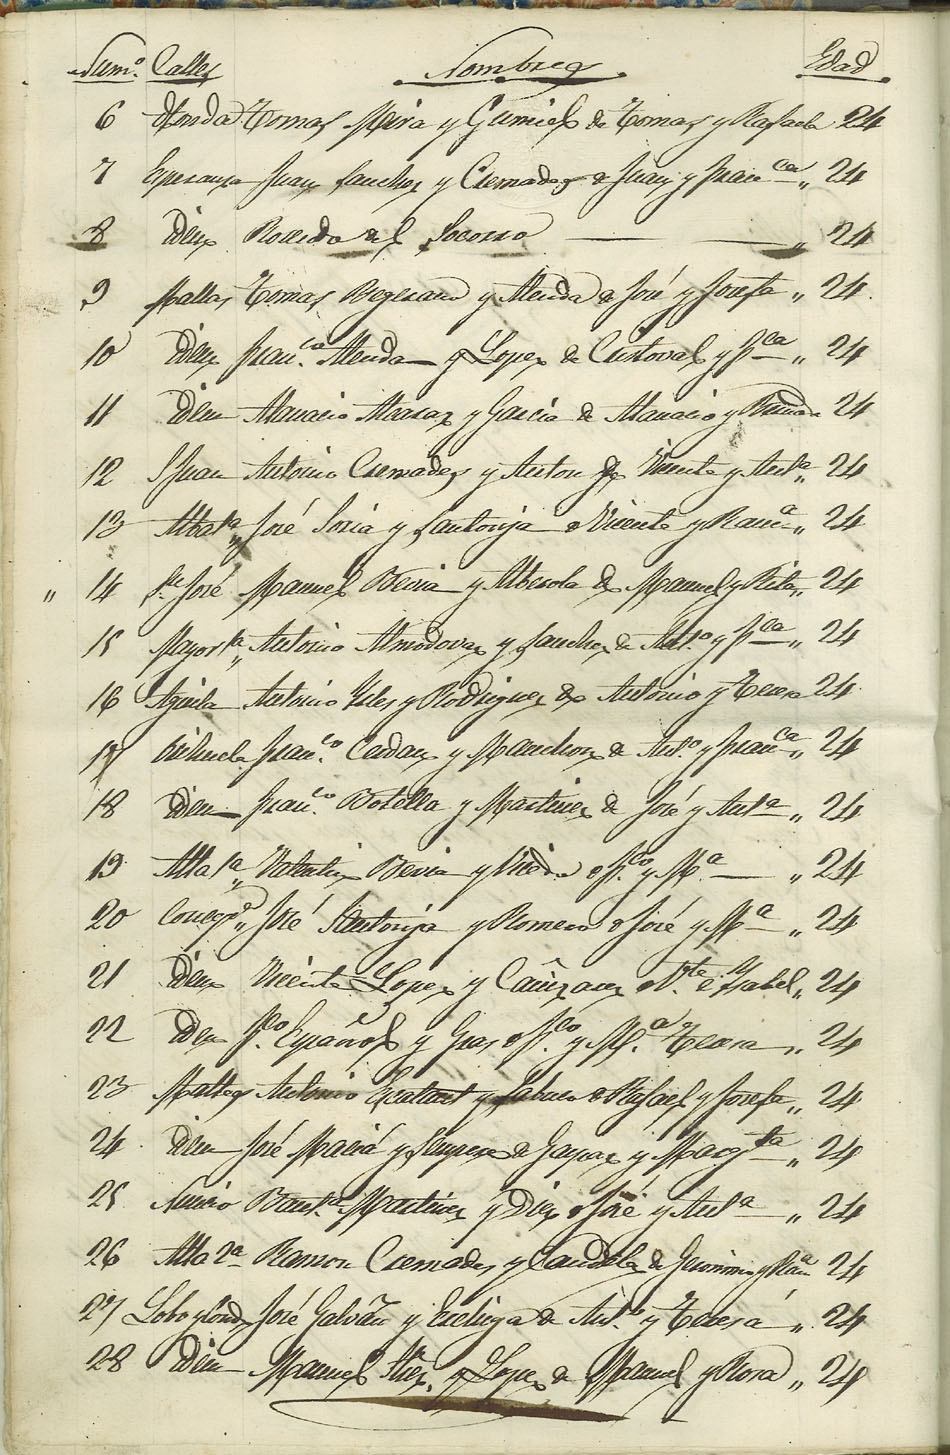 Num.º Calles Nombres Edad
6 Honda Tomas Mira y Gumiel de Tomas y Rafaela 24
7 Esperanza Juan Sanchez y Cremades de Juan y Fran.ca „ 24
8 Idem Rosendo del Socorro „ 24
9 Mallas Tomas Bejerano y Alenda de José y Josefa „ 24
10 Idem Fran.co Alenda y Lopez de Cristoval y F.ca „ 24
11 Idem Atanacio y Garcia de Atanacio y 24
12 S Juan Antonio Cremades y Anton de Vicente y Ant.a „ 24
13 José Soria y Santonja de Vicente y Ram.a „ 24
„ 14 S. José Manuel Bevia y Alberola de Manuel y Rita „ 24
15 Mayor 1.a „ Antonio Almodovar y Sanchez de Ant.o y F.ca „ 24
16 Aguila Antonio Ysles y Rodriguez de Antonio y Teresa 24
17 Fran.co y Manchon de Ant.o y Fran.ca „ 24
18 Idem Fran.co Botella y Martinez de José y Ant.a „ 24
19 Alta 1.a „ Valentin Bevia y de F.co y M.a „ 24
20 Concep.n „ José Santonja y Romero de José y M.a „ 24
21 Idem Vicente Lopez y Cañizares de V.te é Ysabel „ 24
22 Idem F.co Español y Gras de F.co y M.a Teresa „ 24
23 Antonio y de Rafael y Josefa „ 24
24 Idem José Maciá y Sempere de Gaspar y Marg.ta „ 24
25 Baut.a Martinez y Diez de José y Ant.a „ 24
26 Alta 2.a Ramon Cremades y Candela de Geronimo y Ram.a 24
27 Lobo José Galvañ y de Ant.o y Teresa „ 24
28 Idem Manuel y Lopez de Manuel y Rosa „ 24